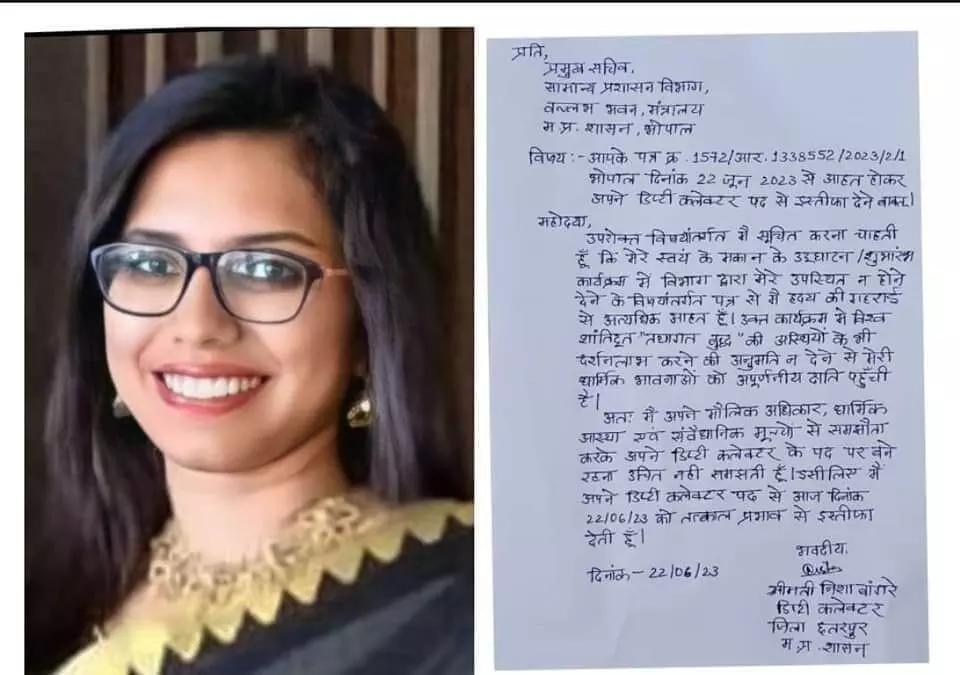 प्रति,
प्रमुख सचिव,
सामान्य प्रशासन विभाग,
वल्लभ भवन, मंत्रालय
म.प्र. शासन, भोपाल
विषय :- आपके पत्र क्र. 1572/आर.1338552/2023/2/1
भोपाल दिनांक 22 जून 2023 से आहत होकर
अपने डिप्टी कलेक्टर पद से इस्तीफा देने बाबत।
महोदया,
उपरोक्त विषयांतर्गत मै सूचित करना चाहती
हूँ कि मेरे स्वयं के मकान के उद्घाटन/शुभारंभ
कार्यक्रम में विभाग द्वारा मेरे उपस्थित न होने
देने के विषयांतर्गत पत्र से मै हृदय की गहराई
से अत्यधिक आहत हूँ। उक्त कार्यक्रम मे विश्व
शांतिदूत "तथागत बुद्ध" की अस्थियों के भी
दर्शनलाभ करने की अनुमति न देने से मेरी
धार्मिक भावनाओं को अपूर्णनीय क्षति पहुँची
है।
अतः मैं अपने मौलिक अधिकार, धार्मिक
आस्था एवं संवैधानिक मूल्यों से समझौता
करके अपने डिप्टी कलेक्टर के पद पर बने
रहना उचित नही समझती हूँ। इसीलिए मैं
अपने डिप्टी कलेक्टर पद से आज दिनांक
22/06/23 को तत्काल प्रभाव से इस्तीफा
देती हूँ।
भवदीय.
दिनांक - 22/06/23
श्रीमती निशा बांगरे
डिप्टी कलेक्टर
जिला छतरपुर
म.प्र. शासन